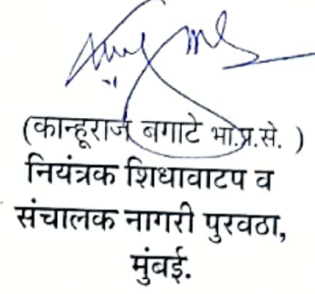 (कान्हूराज बगाटे भा.प्र.से. )
नियंत्रक शिधावाटप व
संचालक नागरी पुरवठा,
मुंबई.